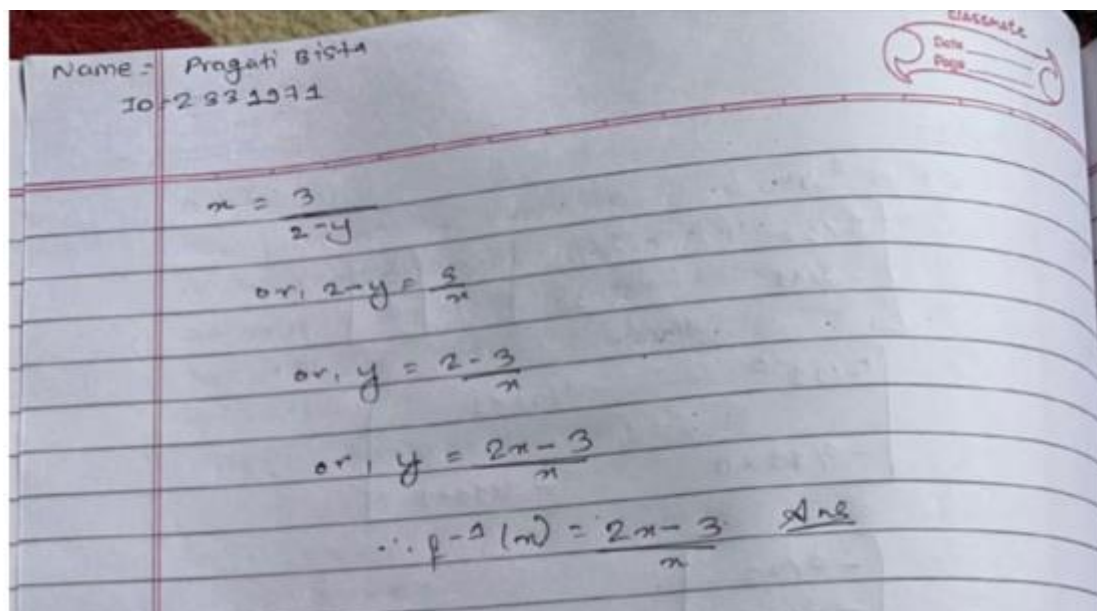 classmate
Date
Page
Name = Pragati Bista
ID - 2331971
x = 3/(2-y)
or, 2-y = 3/x
or, y = 2 - 3/x
or, y = (2x - 3)/x
∴ f⁻¹(x) = (2x - 3)/x Ans